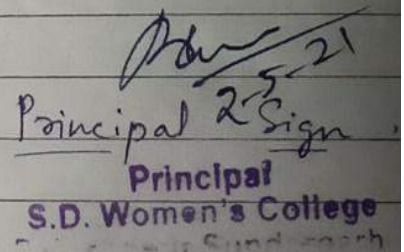 2-5-21
Principal Sign.
Principal
S.D. Women's College